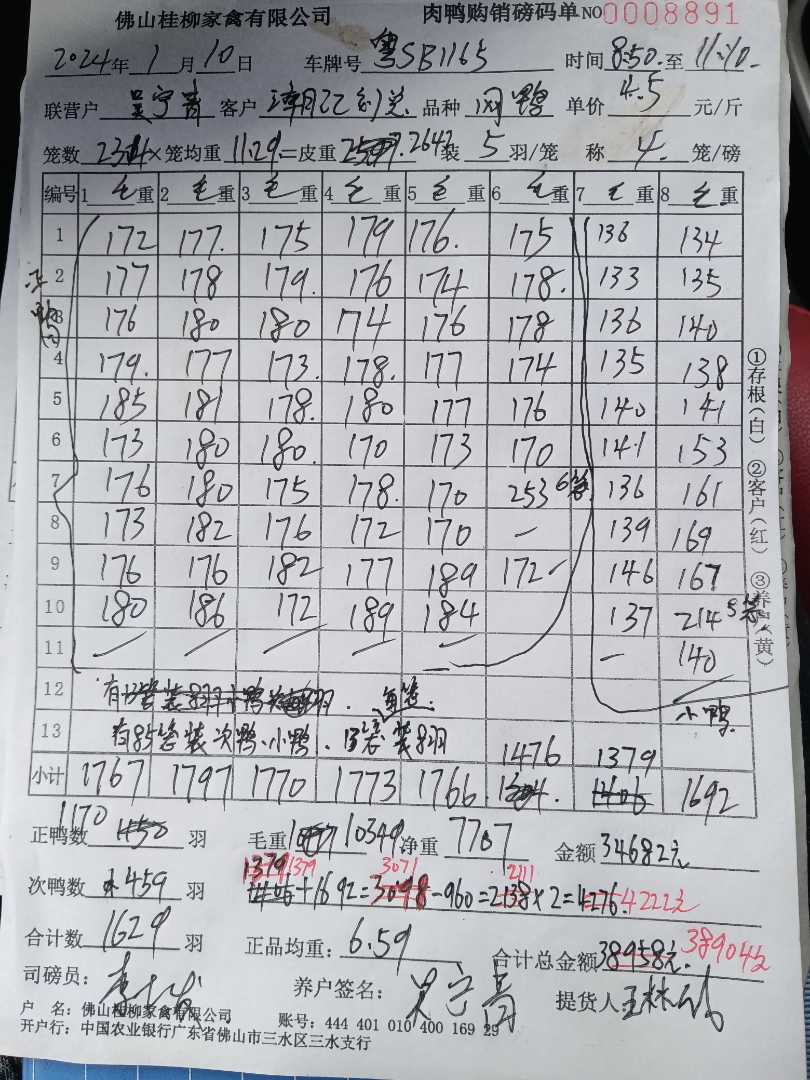 佛山桂柳家禽有限公司 肉鸭购销磅码单 NO 0008891
2024年1月10日 车牌号 粤SB1165 时间 8:50 至 11:10
联营户 吴宁青 客户 品种 单价 4.5 元/斤
笼数 234 × 笼均重 11.29 = 皮重 2642 装 5 羽/笼 称 4 笼/磅
编号 1 毛重 2 毛重 3 毛重 4 毛重 5 毛重 6 毛重 7 毛重 8 毛重
1 172 177. 175 179 176. 175 136 134
2 177 178 179. 176 174 178. 133 135
3 176 180 180 174 176 178 136 140
4 179. 177 173. 178. 177 174 135 138
5 185 181 178. 180 177 176 140 141
6 173 180 180. 170 173 170 141 153
7 176 180 175 178. 170 253 6笼 136 161
8 173 182 176 172 170 — 139 169
9 176 176 182 177 189 172 146 167
10 180 186 172 189 184 137 214 5笼
11 — — — — — — 140
12 小鸭
13 有85笼装次鸭、小鸭. 装8羽 1476 1379
小计 1767 1797 1770 1773 1766 1692
正鸭数 1170 羽 毛重 10349 净重 7707 金额 34682元
1379 1379 3071 2111
次鸭数 459 羽 +1692=3098-960=2138×2=4276. 4222元
合计数 1629 羽 正品均重: 6.59 合计总金额 38958元. 38904元
司磅员: 养户签名: 吴宁青 提货人:
户 名: 佛山桂柳家禽有限公司 账号: 444 401 010 400 169 29
开户行: 中国农业银行广东省佛山市三水区三水支行
①存根(白) ②客户(红) ③养户(黄)